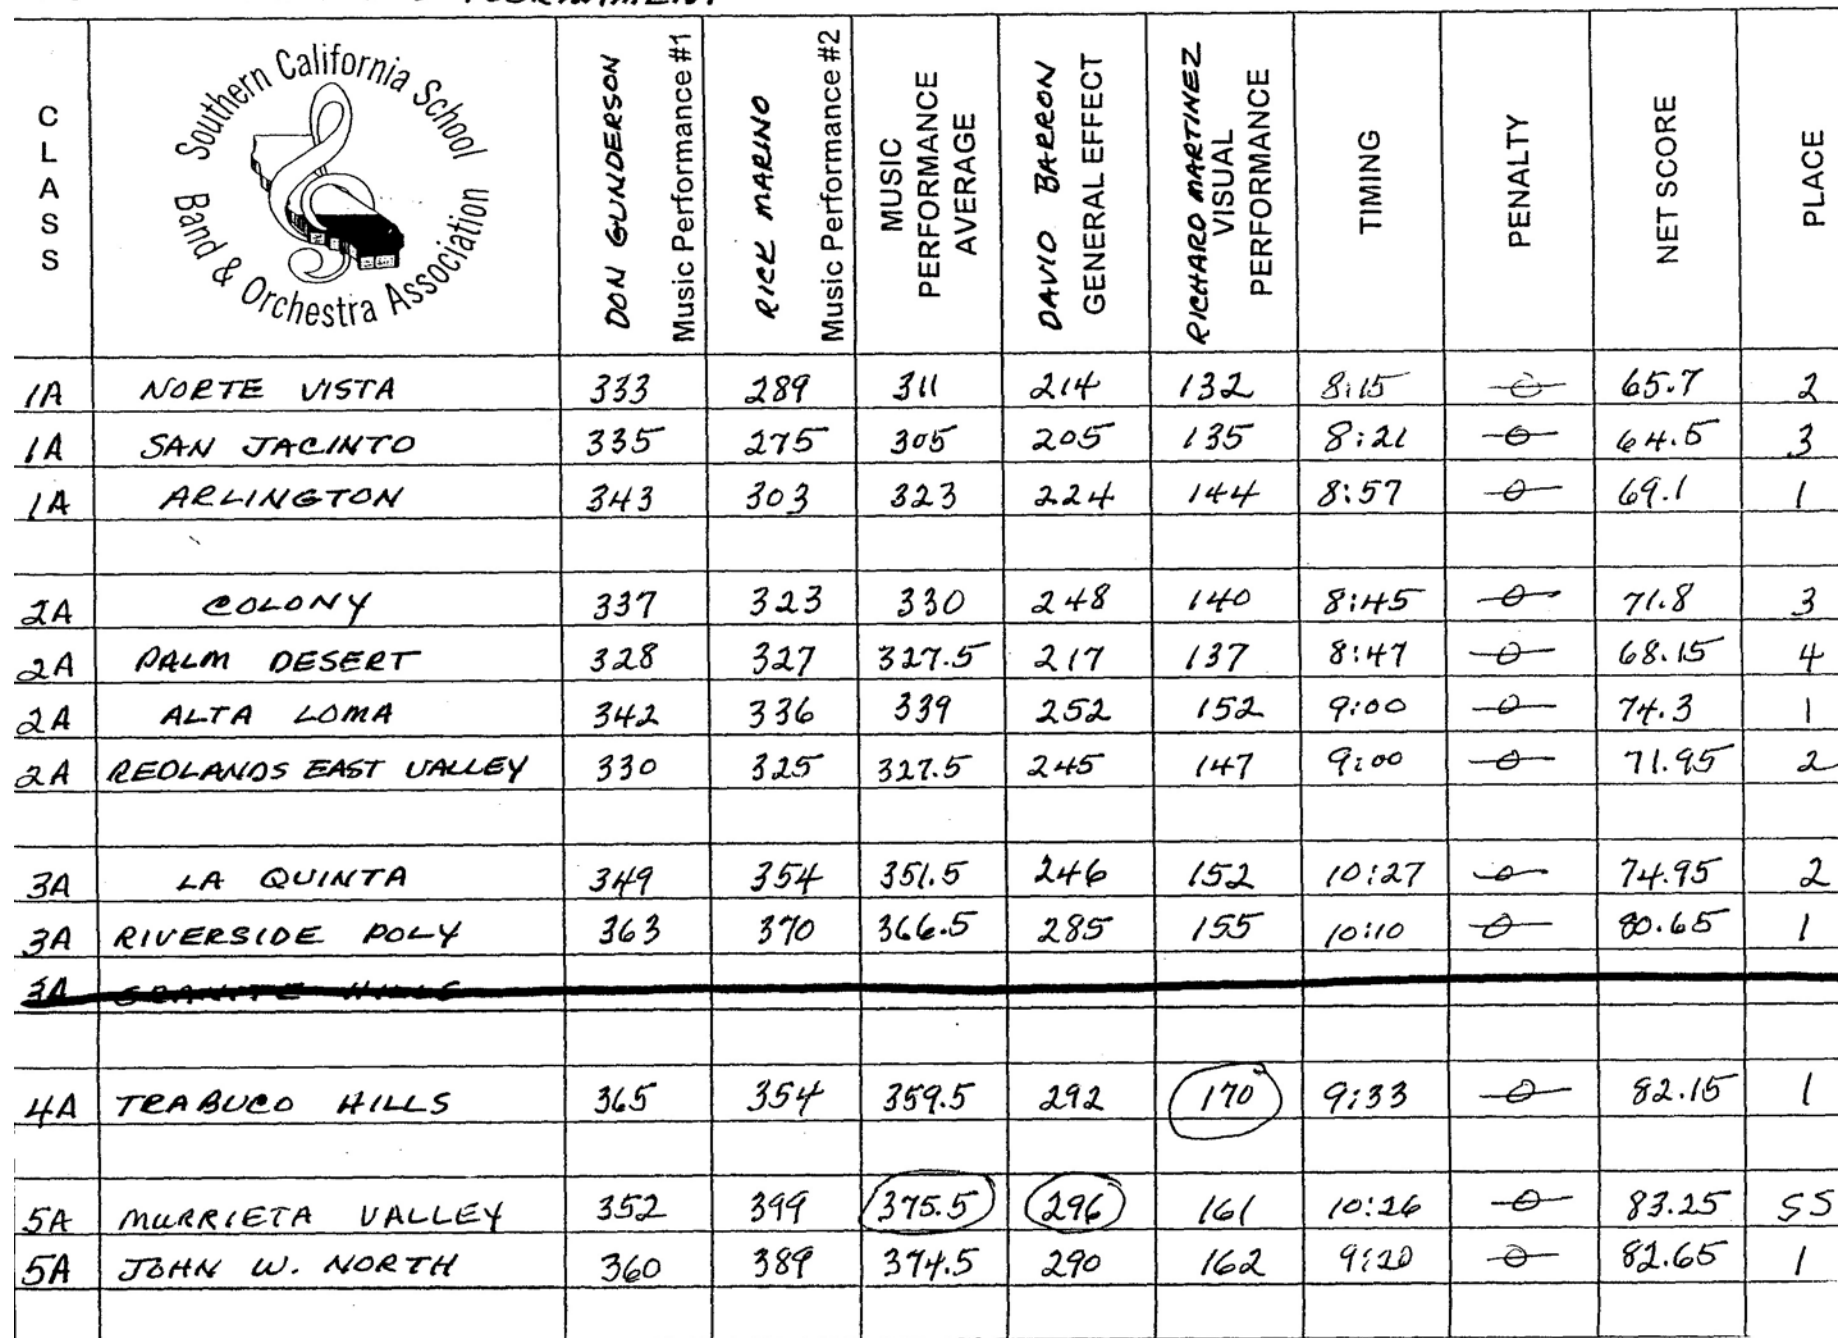 TOURNAMENT
CLASS
Southern California School
Band & Orchestra Association
DON GUNDERSON
Music Performance #1
RICK MARINO
Music Performance #2
MUSIC
PERFORMANCE
AVERAGE
DAVID BARRON
GENERAL EFFECT
RICHARD MARTINEZ
VISUAL
PERFORMANCE
TIMING
PENALTY
NET SCORE
PLACE
1A NORTE VISTA 333 289 311 214 132 8:15 0 65.7 2
1A SAN JACINTO 335 275 305 205 135 8:21 0 64.5 3
1A ARLINGTON 343 303 323 224 144 8:57 0 69.1 1
2A COLONY 337 323 330 248 140 8:45 0 71.8 3
2A PALM DESERT 328 327 327.5 217 137 8:47 0 68.15 4
2A ALTA LOMA 342 336 339 252 152 9:00 0 74.3 1
2A REDLANDS EAST VALLEY 330 325 327.5 245 147 9:00 0 71.95 2
3A LA QUINTA 349 354 351.5 246 152 10:27 0 74.95 2
3A RIVERSIDE POLY 363 370 366.5 285 155 10:10 0 80.65 1
3A GRANITE HILLS
4A TRABUCO HILLS 365 354 359.5 292 170 9:33 0 82.15 1
5A MURRIETA VALLEY 352 399 375.5 296 161 10:26 0 83.25 SS
5A JOHN W. NORTH 360 389 374.5 290 162 9:20 0 82.65 1